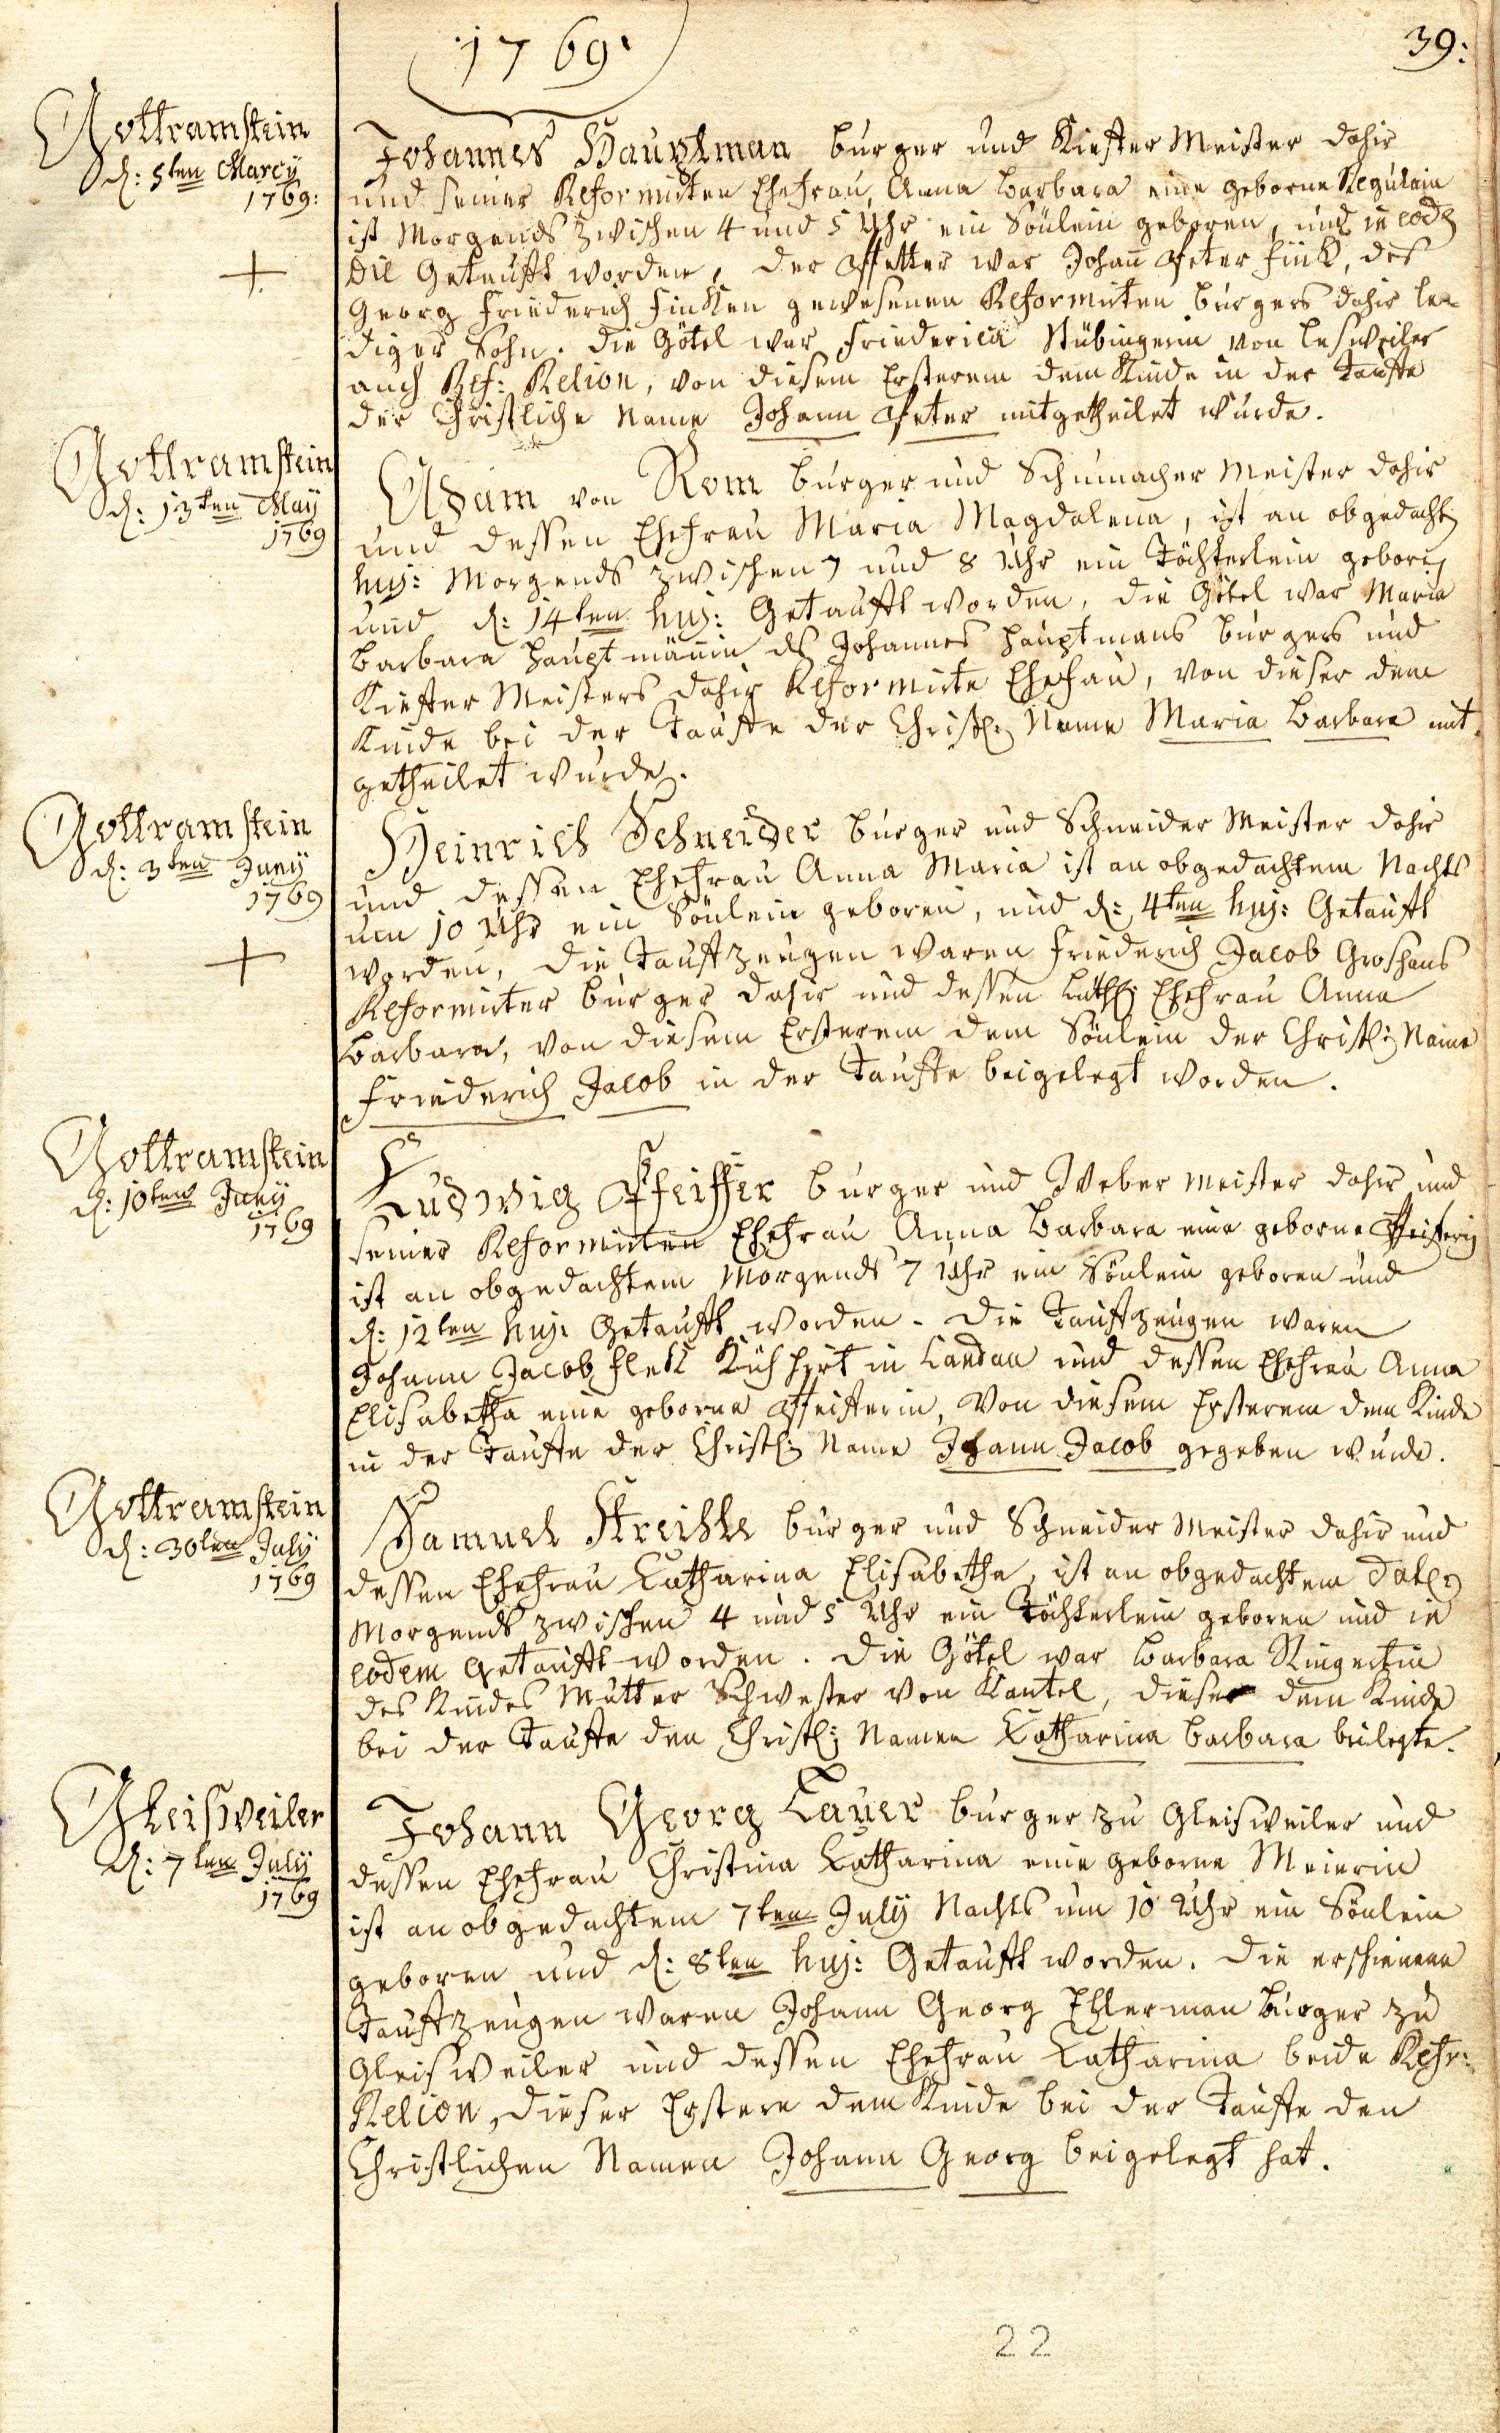 1769.
39:
Gottramstein
d: 5ten Marcy
1769:
Johannes Hauptman burger und Kiefter Meister dahir
und seiner Reformirten Ehefrau, Anna Barbara eine geborne Regulain
ist Morgends zwischen 4 und 5 Uhr ein Sönlein geboren, und in eod:
Die Getaufft worden, der Pfetter war Johann Peter Finck, des
Georg Friederich Fincken gewesenen Reformirten burgers dahir le-
diger Sohn. die Götel war Friederica Stübingerin von
auch Ref: Relion, von diesem Ersterem dem Kinde in der Tauffe
der Christliche Name Johann Peter mitgetheilet wurde.
Gottramstein
d: 13ten May
1769
Adam von Rom burger und Schumacher Meister dahir
und dessen Ehefrau Maria Magdalena, ist an obgedachten
huj: Morgends zwischen 7 und 8 Uhr ein Töchterlein geboren
und d: 14ten huj: Getaufft worden, die Götel war Maria
Barbara Hauptmännin des Johannes Hauptmans burgers und
Kiefter Meisters dahir Reformirte Ehefrau, von dieser dem
Kinde bei der Tauffe der Christl: Name Maria Barbara mit-
getheilet wurde.
Gottramstein
d: 3ten Juny
1769
Heinrich Schneider burger und Schneider Meister dahir
und dessen Ehefrau Anna Maria ist an obgedachtem Nachts
um 10 Uhr ein Sönlein geboren, und d: 4ten huj: Getaufft
worden, die Tauffzeugen waren Friederich Jacob Groshans
Reformirter burger dahir und dessen Luth: Ehefrau Anna
Barbara, von diesem Ersterem dem Sönlein der Christl: Name
Friederich Jacob in der Tauffe beigelegt worden.
Gottramstein
d: 10ten Juny
1769
Ludwig Pfeiffer burger und Weber Meister dahir und
seiner Reformirten Ehefrau Anna Barbara eine geborne
ist an obgedachtem Morgends 7 Uhr ein Sönlein geboren und
d: 12ten huj: Getaufft worden. Die Tauffzeugen waren
Johann Jacob Fleck Kühhirt in Landau und dessen Ehefrau Anna
Elisabetha eine geborne Pfeifferin, Von diesem Ersterem dem Kinde
in der Tauffe der Christl: Name Johann Jacob gegeben wurde.
Gottramstein
d: 30ten July
1769
Samuel Streißle burger und Schneider Meister dahir und
dessen Ehefrau Catharina Elisabetha, ist an obgedachtem Dato
Morgends zwischen 4 und 5 Uhr ein Töchterlein geboren und in
eodem Getaufft worden. Die Götel war Barbara Ringertin
des Kindes Mutter Schwester von Kantel, dieser dem Kinde
bei der Tauffe den Christl: Namen Catharina Barbara beilegte.
Gleisweiler
d: 7ten July
1769
Johann Georg Lauer burger zu Gleisweiler und
dessen Ehefrau Christina Catharina eine geborne Meierin
ist an obgedachtem 7ten July Nachts um 10 Uhr ein Sönlein
geboren und d: 8ten huj: Getaufft worden. Die erschienene
Tauffzeugen waren Johann Georg Ellerman Burger zu
Gleisweiler und dessen Ehefrau Catharina beide Refr:
Relion, dieser Erstere dem Kinde bei der Tauffe den
Christlichen Namen Johann Georg beigelegt hat.
22